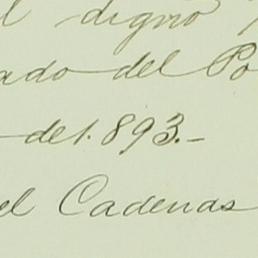 l digno
ado del Po
del. 893.-
el Cadenas